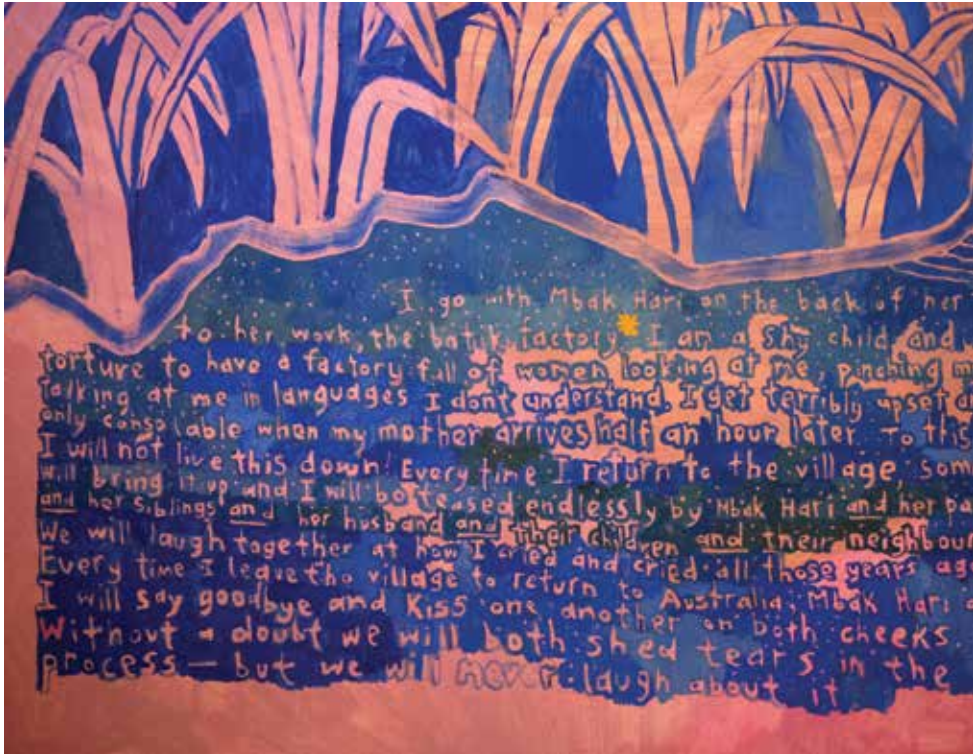 I go with Mbak Hari on the back of her
to her work, the batik factory. I am a shy child and
torture to have a factory full of women looking at me, pinching m
talking at me in langudges I dont understand. I get terribly upset a
only consolable when my mother arrives half an hour later. To this
I will not live this down. Every time I return to the village, som
will bring it up and I will be teased endlessly by Mbak Hari and her pa
and her siblings and her husband and their children and their neighbour
We will laugh together at how I cried and cried all those years ag
Every time I leave the village to return to Australia, Mbak Hari
I will say goodbye and Kiss one another on both cheeks.
Without a doubt we will both shed tears in the
process — but we will never laugh about it.